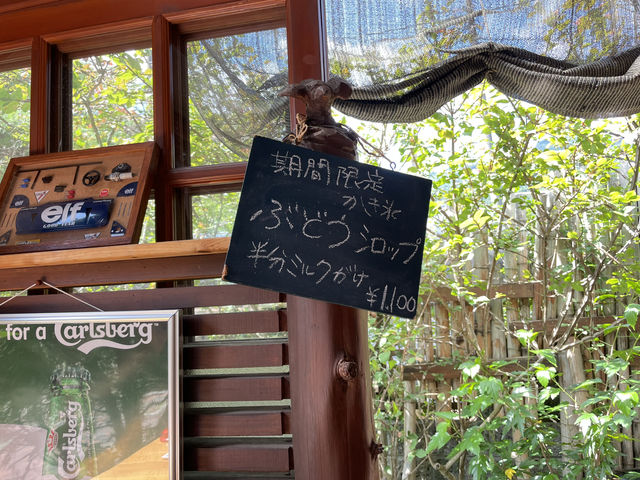 期間限定
かき氷
ぶどうシロップ
半分ミルクがけ
¥1,100
elf
for a Carlsberg
Carlsberg